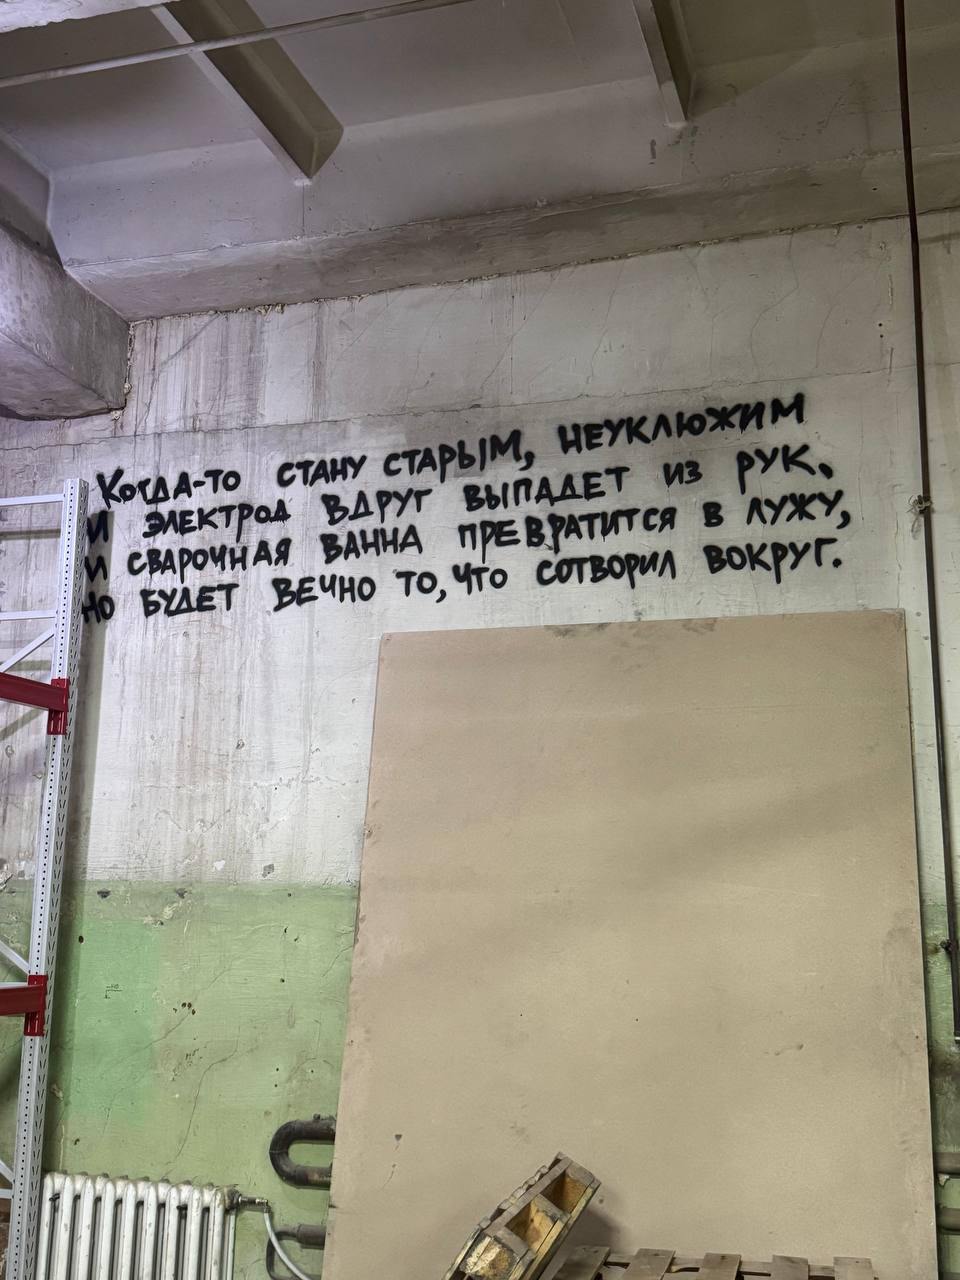 Когда-то стану старым, неуклюжим
И электрод вдруг выпадет из рук.
И сварочная ванна превратится в лужу,
Но будет вечно то, что сотворил вокруг.